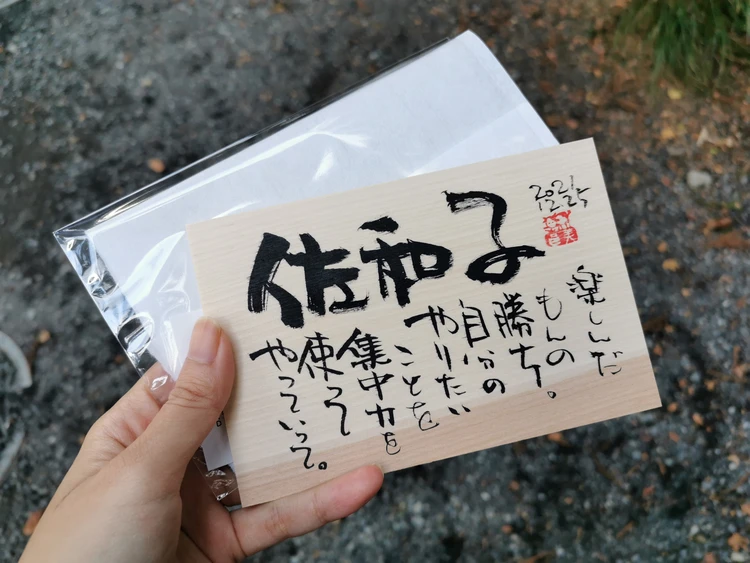 佐和子
2021
12.25
楽しんだ
もんの
勝ち。
自分の
やりたい
ことを
集中力を
使って
やっていって。